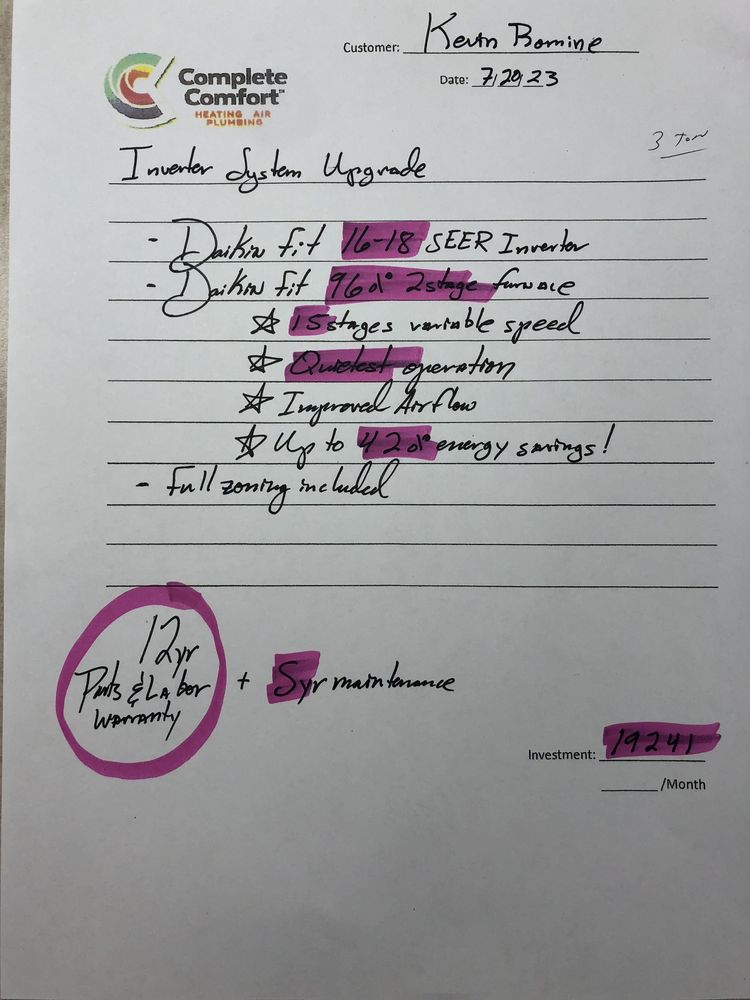 Customer: Kevin Romine
Date: 7/20/23
Complete
Comfort™
HEATING AIR
PLUMBING
3 Ton
Inverter System Upgrade
- Daikin fit 16-18 SEER Inverter
- Daikin fit 96% 2stage furnace
☆ 15 stages variable speed
☆ Quietest operation
☆ Improved Airflow
☆ Up to 42% energy savings!
- Full zoning included
12yr
Parts & Labor + 5yr maintenance
warranty
Investment: 19241
/Month